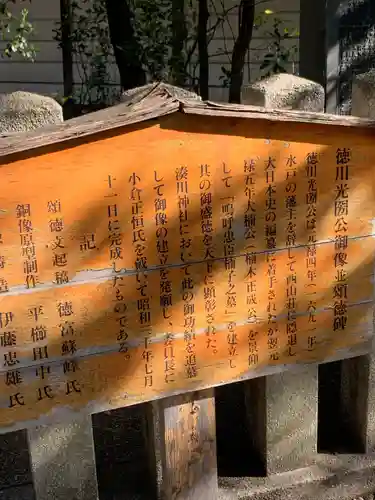 徳川光圀公御像並頌徳碑
徳川光圀公は元禄四年(一六九一年)
水戸の藩主を辞して西山荘に隠退し
大日本史の編纂に着手されたが翌元
禄五年大楠公(楠木正成公)を景仰
して「嗚呼忠臣楠子之墓」を建立し
其の御盛徳を天下に顕彰された。
湊川神社においてこの御功績を追慕
して御像の建立を発願し、委員長に
小倉正恒氏を戴いて昭和三十年七月
十一日に完成したものである。
記
頌徳文起稿 徳富蘇峰氏
銅像原型制作 平櫛田中氏
伊藤忠雄氏